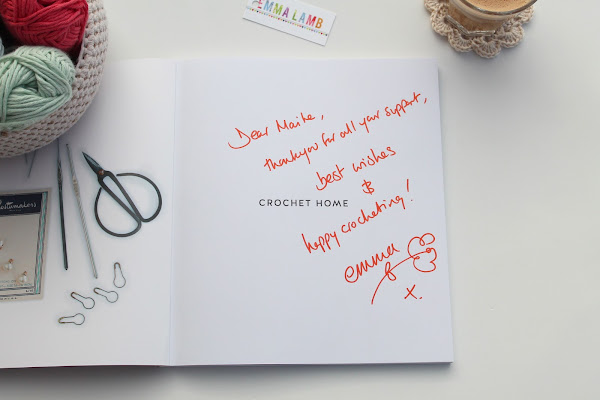 EMMA LAMB
Dear Maite,
thankyou for all your support,
best wishes
&
CROCHET HOME
happy crocheting!
emma
x.